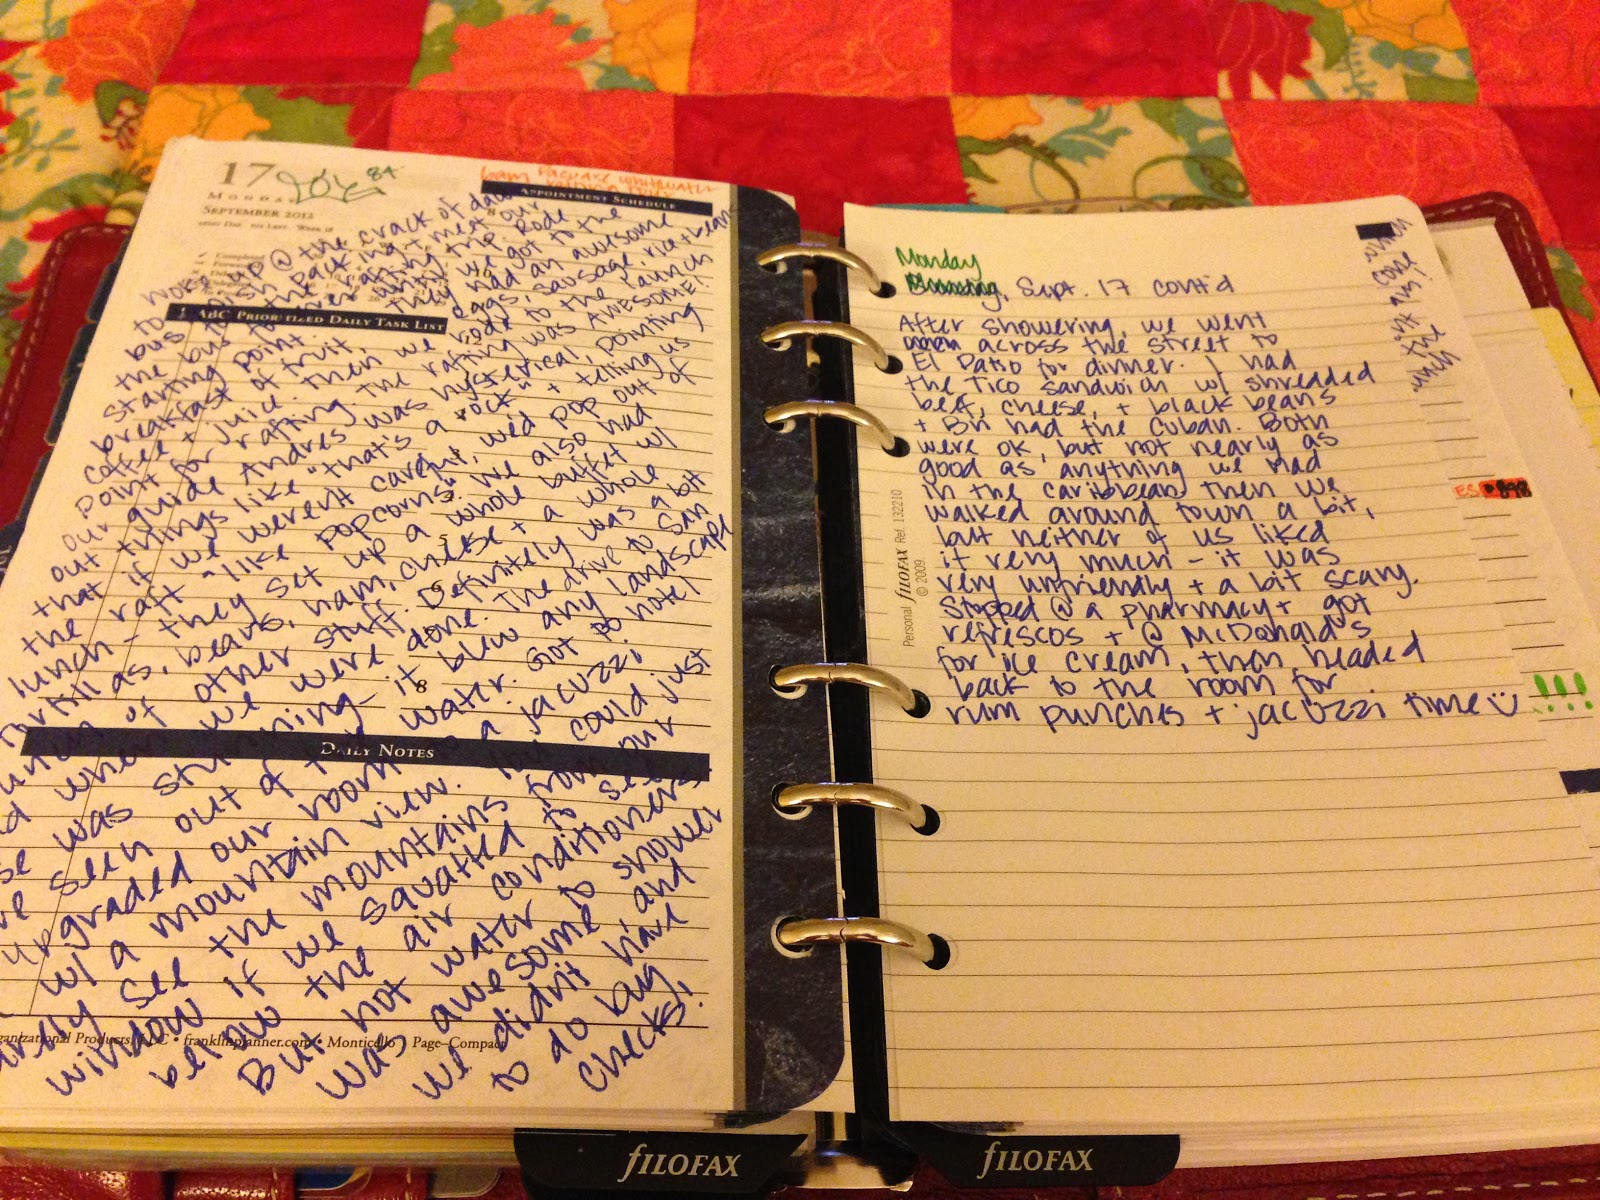 17
MONDAY
SEPTEMBER 2012
84
6am Pacuare Whitewater
rafting trip
APPOINTMENT SCHEDULE
8
Woke up @ the crack of dawn
to finish packing + meet our
bus to the rafting trip. Rode
the bus
starting point. They had an awesome
breakfast of fruit, eggs, sausage, rice + beans
coffee + juice. Then we rode to the launch
point for rafting. The rafting was AWESOME!!
our guide Andres was hysterical, pointing
out things like "that's a rock" + telling us
that if we weren't careful, we'd pop out of
the raft "like popcorns". We also had
lunch - they set up a whole buffet w/
tortillas, beans, ham, cheese + a whole
bunch of other stuff. Definitely was a bit
when we were done. The drive to San
Jose was stunning - it blew any landscape
I've seen out of the water. Got to hotel
upgraded our room to a jacuzzi
w/ a mountain view. We could just
see the mountains from our
window if we squatted to see
below the air conditioners.
But hot water to shower
was awesome, and
we didn't have
to do bug
checks!
ABC PRIORITIZED DAILY TASK LIST
DAILY NOTES
franklinplanner.com • Monticello Page-Compact
FILOFAX
Monday
, Sept. 17 cont'd
After showering, we went
across the street to
El Patio for dinner. I had
the Tico sandwich w/ shredded
beef, cheese, + black beans
+ Bri had the Cuban. Both
were ok, but not nearly as
good as anything we had
in the caribbean. Then we
walked around town a bit,
but neither of us liked
it very much - it was
very unfriendly + a bit scary.
Stopped @ a pharmacy + got
refrescos + @ McDonald's
for ice cream, then headed
back to the room for
rum punches + jacuzzi time
Personal FILOFAX Ref. 132210
© 2009
!!!
FILOFAX